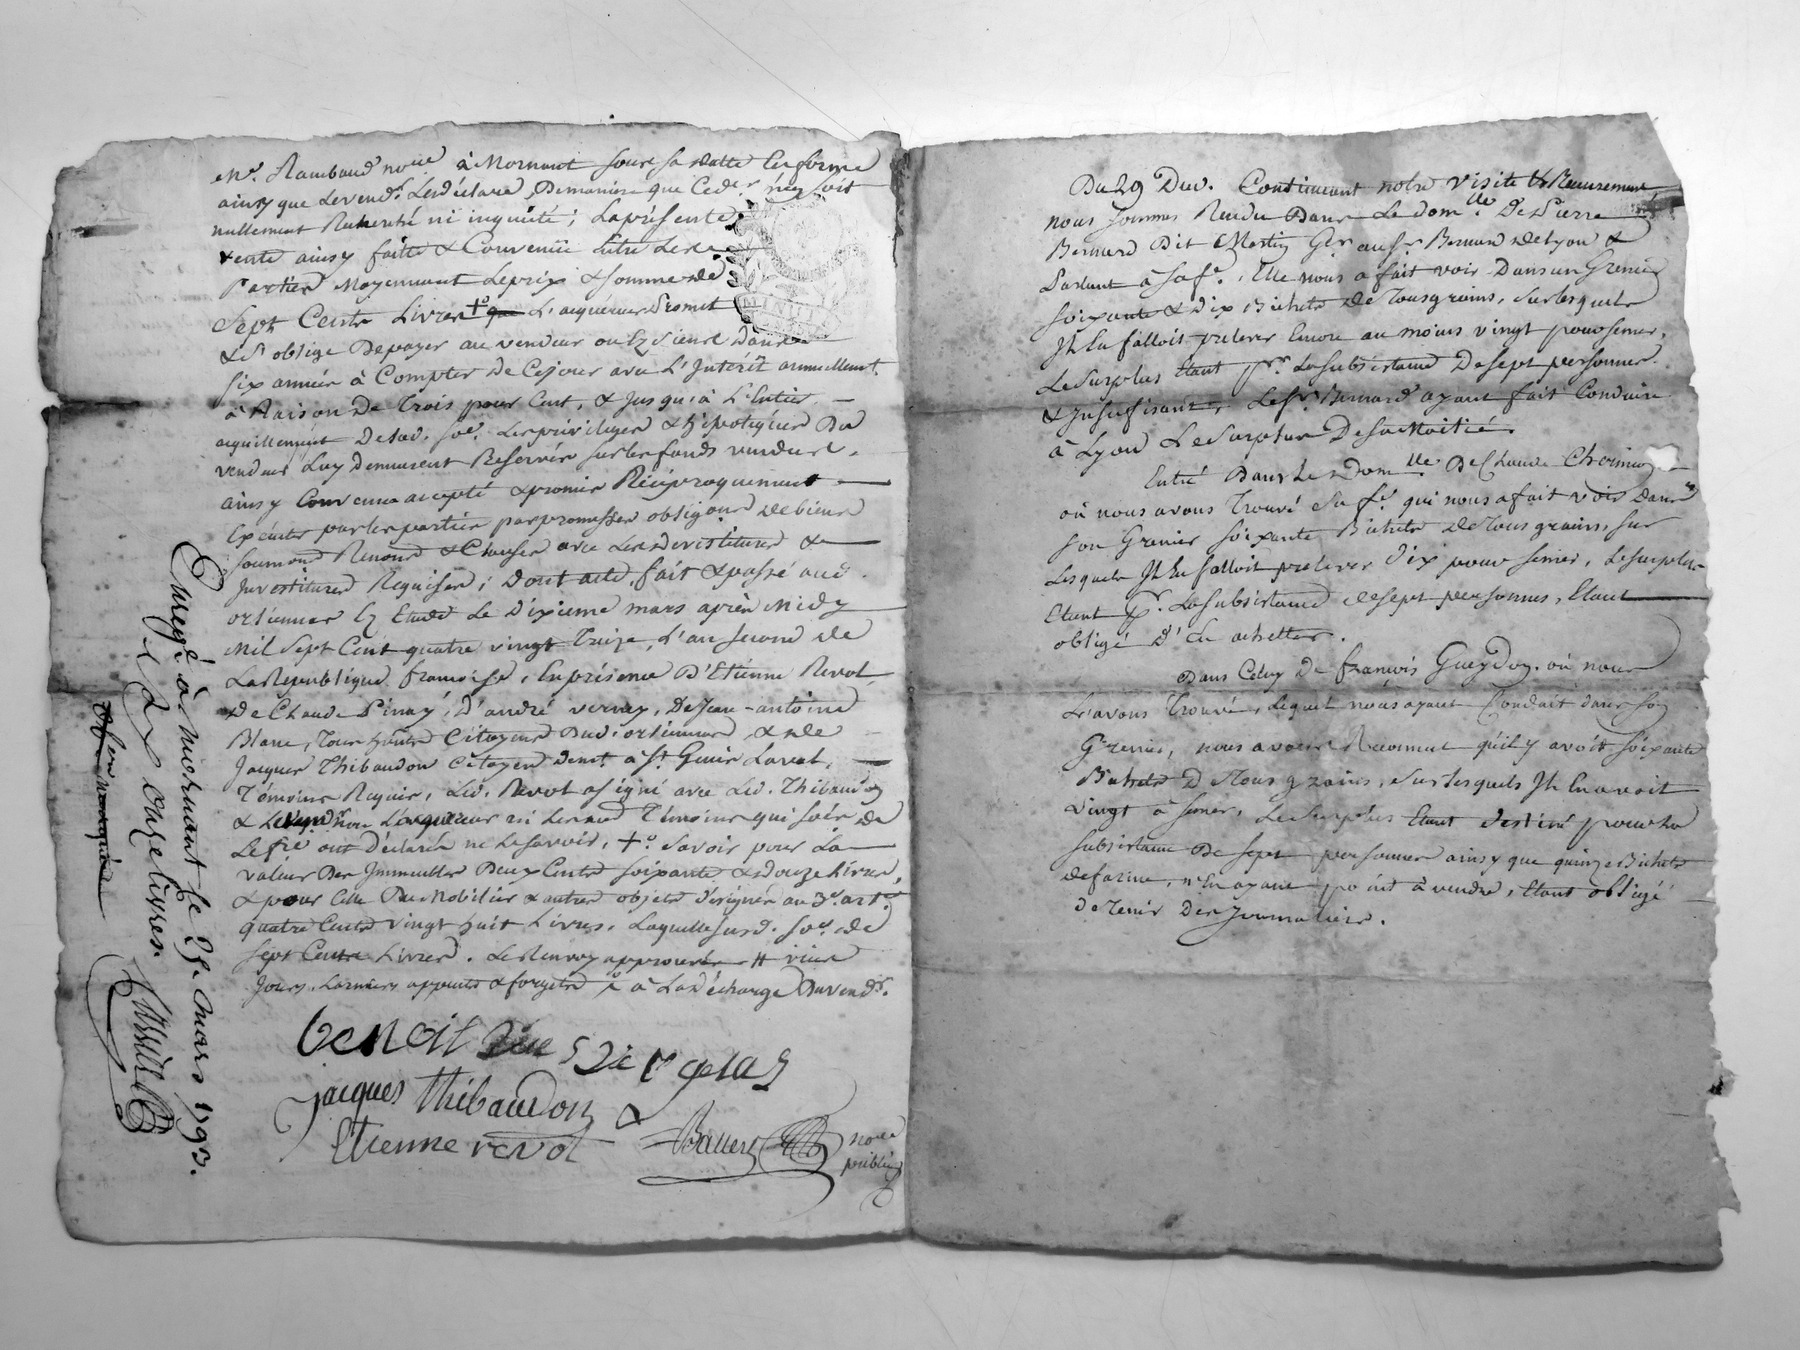 Me. Raimbaud nore à Mornant sous sa datte En forme
ainsy que Le vendr. Le déclare, De maniere que Ceder n'en soit
nullement Recherché ni inquiété ; La présente
vente ainsy faitte & Convenüe Entre Les
Parties Moyennant Le prix & somme de
Sept Cents Livres +° que L'acquéreur Promet
& s'oblige De payer au vendeur ou Ez siens Dans
six années à Compter de Ce jour avec L'Intérêt annuellemt.
à Raison De Trois pour Cent, & jusqu'à L'Entier
acquittement De lad. soe. Les privileges & hipoteques Du
vendeur Luy Demeurent Reservés sur les fonds vendus.
ainsy Convenu accepté & promis Réciproquement
Exécuter par les parties par promesses obligaons de biens
soumons Renons & Clauses avec Les devestitures &
Investitures Requises ; Dont acte, fait & passé aud.
orliennas Ez Etude Le Dixieme mars après Midy
Mil Sept Cent quatre vingt Treize, L'an second de
La Republique françoise, En présence D'Etienne Revol,
De Claude Pinay, D'andré vernay, De Jean-antoine
Blanc, Tous hautre Citoyens Dud. orliennas, & de
Jacques Thibaudon Citoyen demt. à St. Genis Laval,
Témoins Requis, Led. Revol a signé avec Led. Thibaudon
& Le vendr. non L'acquéreur ni Les aud Témoins qui soés de
Le fre ont Déclaré ne Le savoir, +° savoir pour La
valeur Des Immeubles Deux Cents soixante & douze Livres,
& pour Celle Du Mobilier & autres objets désignés au 3e. arte.
quatre Cents vingt huit Livres, Laquelle susd. soe. de
sept Cents Livres. Le Renvoy approuvé
jours, Larmiers appents & forgets à La décharge Du vendr.
benoit
jacques thibaudon
Etienne revol
nore
public
Enregé. à mornant le 25e mars 1793.
onze livres.
Du 29 Dud. Continuant notre visite & Recensement,
nous sommes Rendu Dans Le domlle. De Pierre
Bernard Dit Martin Ger au sr. Bernard de Lyon &
Parlant à sa fe. Elle nous a fait voir Dans un Grenier
soixante & dix Bichets de Tous grains, sur lesquels
Il En falloit prelever Encore au moins vingt pour semer,
Le Surplus Etant pr. La subsistance De sept personnes
& Insufisant, Le sr. Bernard ayant fait Conduire
à Lyon Le Surplus De sa Moitié.
Entré Dans Le Domlle. De Claude
où nous avons Trouvé sa fe. qui nous a fait voir dans
son Grenier soixante Bichets de Tous grains, sur
Lesquels Il En falloit prelever Dix pour semer, Le surplus
Etant pr. La subsistance de sept personnes, Etant
obligé D'En achetter.
Dans Celuy De françois Gueydon, où nous
L'avons Trouvé, Lequel nous ayant Conduit dans son
Grenier, nous avons Reconnut qu'il y avoit soixante
Bichets De Tous grains, sur lesquels Il En avoit
vingt à semer, Le Surplus Etant destiné pour La
subsistance De sept personnes ainsy que quinze Bichets
de farine, n'En ayant point à vendre, Etant obligé
de Tenir Des Journaliers.